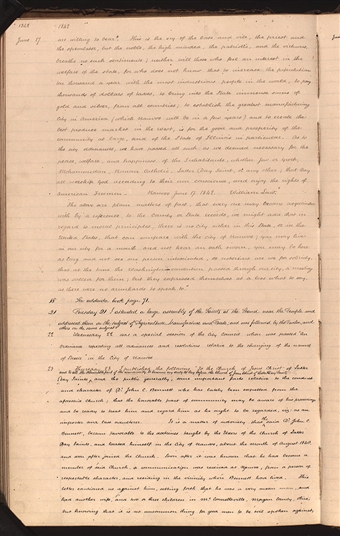 1842
1842
June 17
are willing to bear. This is the cry of the base and vile, the priest and
the speculator, but the noble, the high minded, the patriotic, and the virtuous
breathe no such sentiments; neither will those who feel an interest in the
welfare of the state, for who does not know that to increase the population
an hundred a week with the most industrious people in the world, to pay
thousands of dollars of taxes, to bring into the State immense sums of
gold and silver, from all countries; to establish the greatest manufacturing
City in America, (which Nauvoo will be in a few years) and to create the
best produce market in the west, is for the good and prosperity of the
community at large, and of the State of Illinois in particular. As to
the city ordinances, we have passed all such as we deemed necessary for the
peace, welfare, and happiness of the inhabitants, whether Jew or Greek,
Mahommedan, Roman Catholic, Latter Day Saint, or any other; that they
all worship God according to their own conscience, and enjoy the rights of
American freemen. Nauvoo June 17. 1842. William Law
The above are plain matters of fact, that every one may become acquainted
with by a reference to the County, or State records, we might add that in
regard to moral principle, there is no city either in this State, or in the
United States, that can compare with the city of Nauvoo; you may live
in our city for a month and not hear an oath sworn, you may be here
as long and not see one person intoxicated, so notorious are we for sobriety,
that at the time the Washingtonian convention passed through our city, a meeting
was called for them; but they expressed themselves at a loss what to say,
as there were no drunkards to speak to."
18 For addenda book page 71.
21 Tuesday 21
22 Wednesday 22 was a special session of the City Council when was passed "An
Ordinance repealing all ordinances and resolutions relative to changing of the names
of Deeds" in the City of Nauvoo
23 Thursday 23 I published the following "To the Church of Jesus Christ of Latter
Day Saints, and the public generally; some important facts relative to the conduct
and character of Dr. John C. Bennett who has lately been expelled from the
aforesaid church; that the honorable part of community may be aware of his proceedings
and be ready to treat him and regard him as he ought to be regarded, viz: as an
imposter and base adulterer. It is a matter of notoriety that said Dr. John C.
Bennett, became favorable to the doctrines taught by the Elders of the church of Latter
Day Saints, and located himself in the City of Nauvoo, about the month of August 1840,
and soon after joined the church. Soon after it was known that he had become a
member of said Church, a communication was received at Nauvoo, from a person of
respectable character, and residing in the vicinity where Bennett had lived. This
letter cautioned us against him, setting forth that he was a very mean man, and
had a wife, and two or three children in McConnelsville, Morgan County, Ohio,
but knowing that it is no uncommon thing for good men to be evil spoken against,